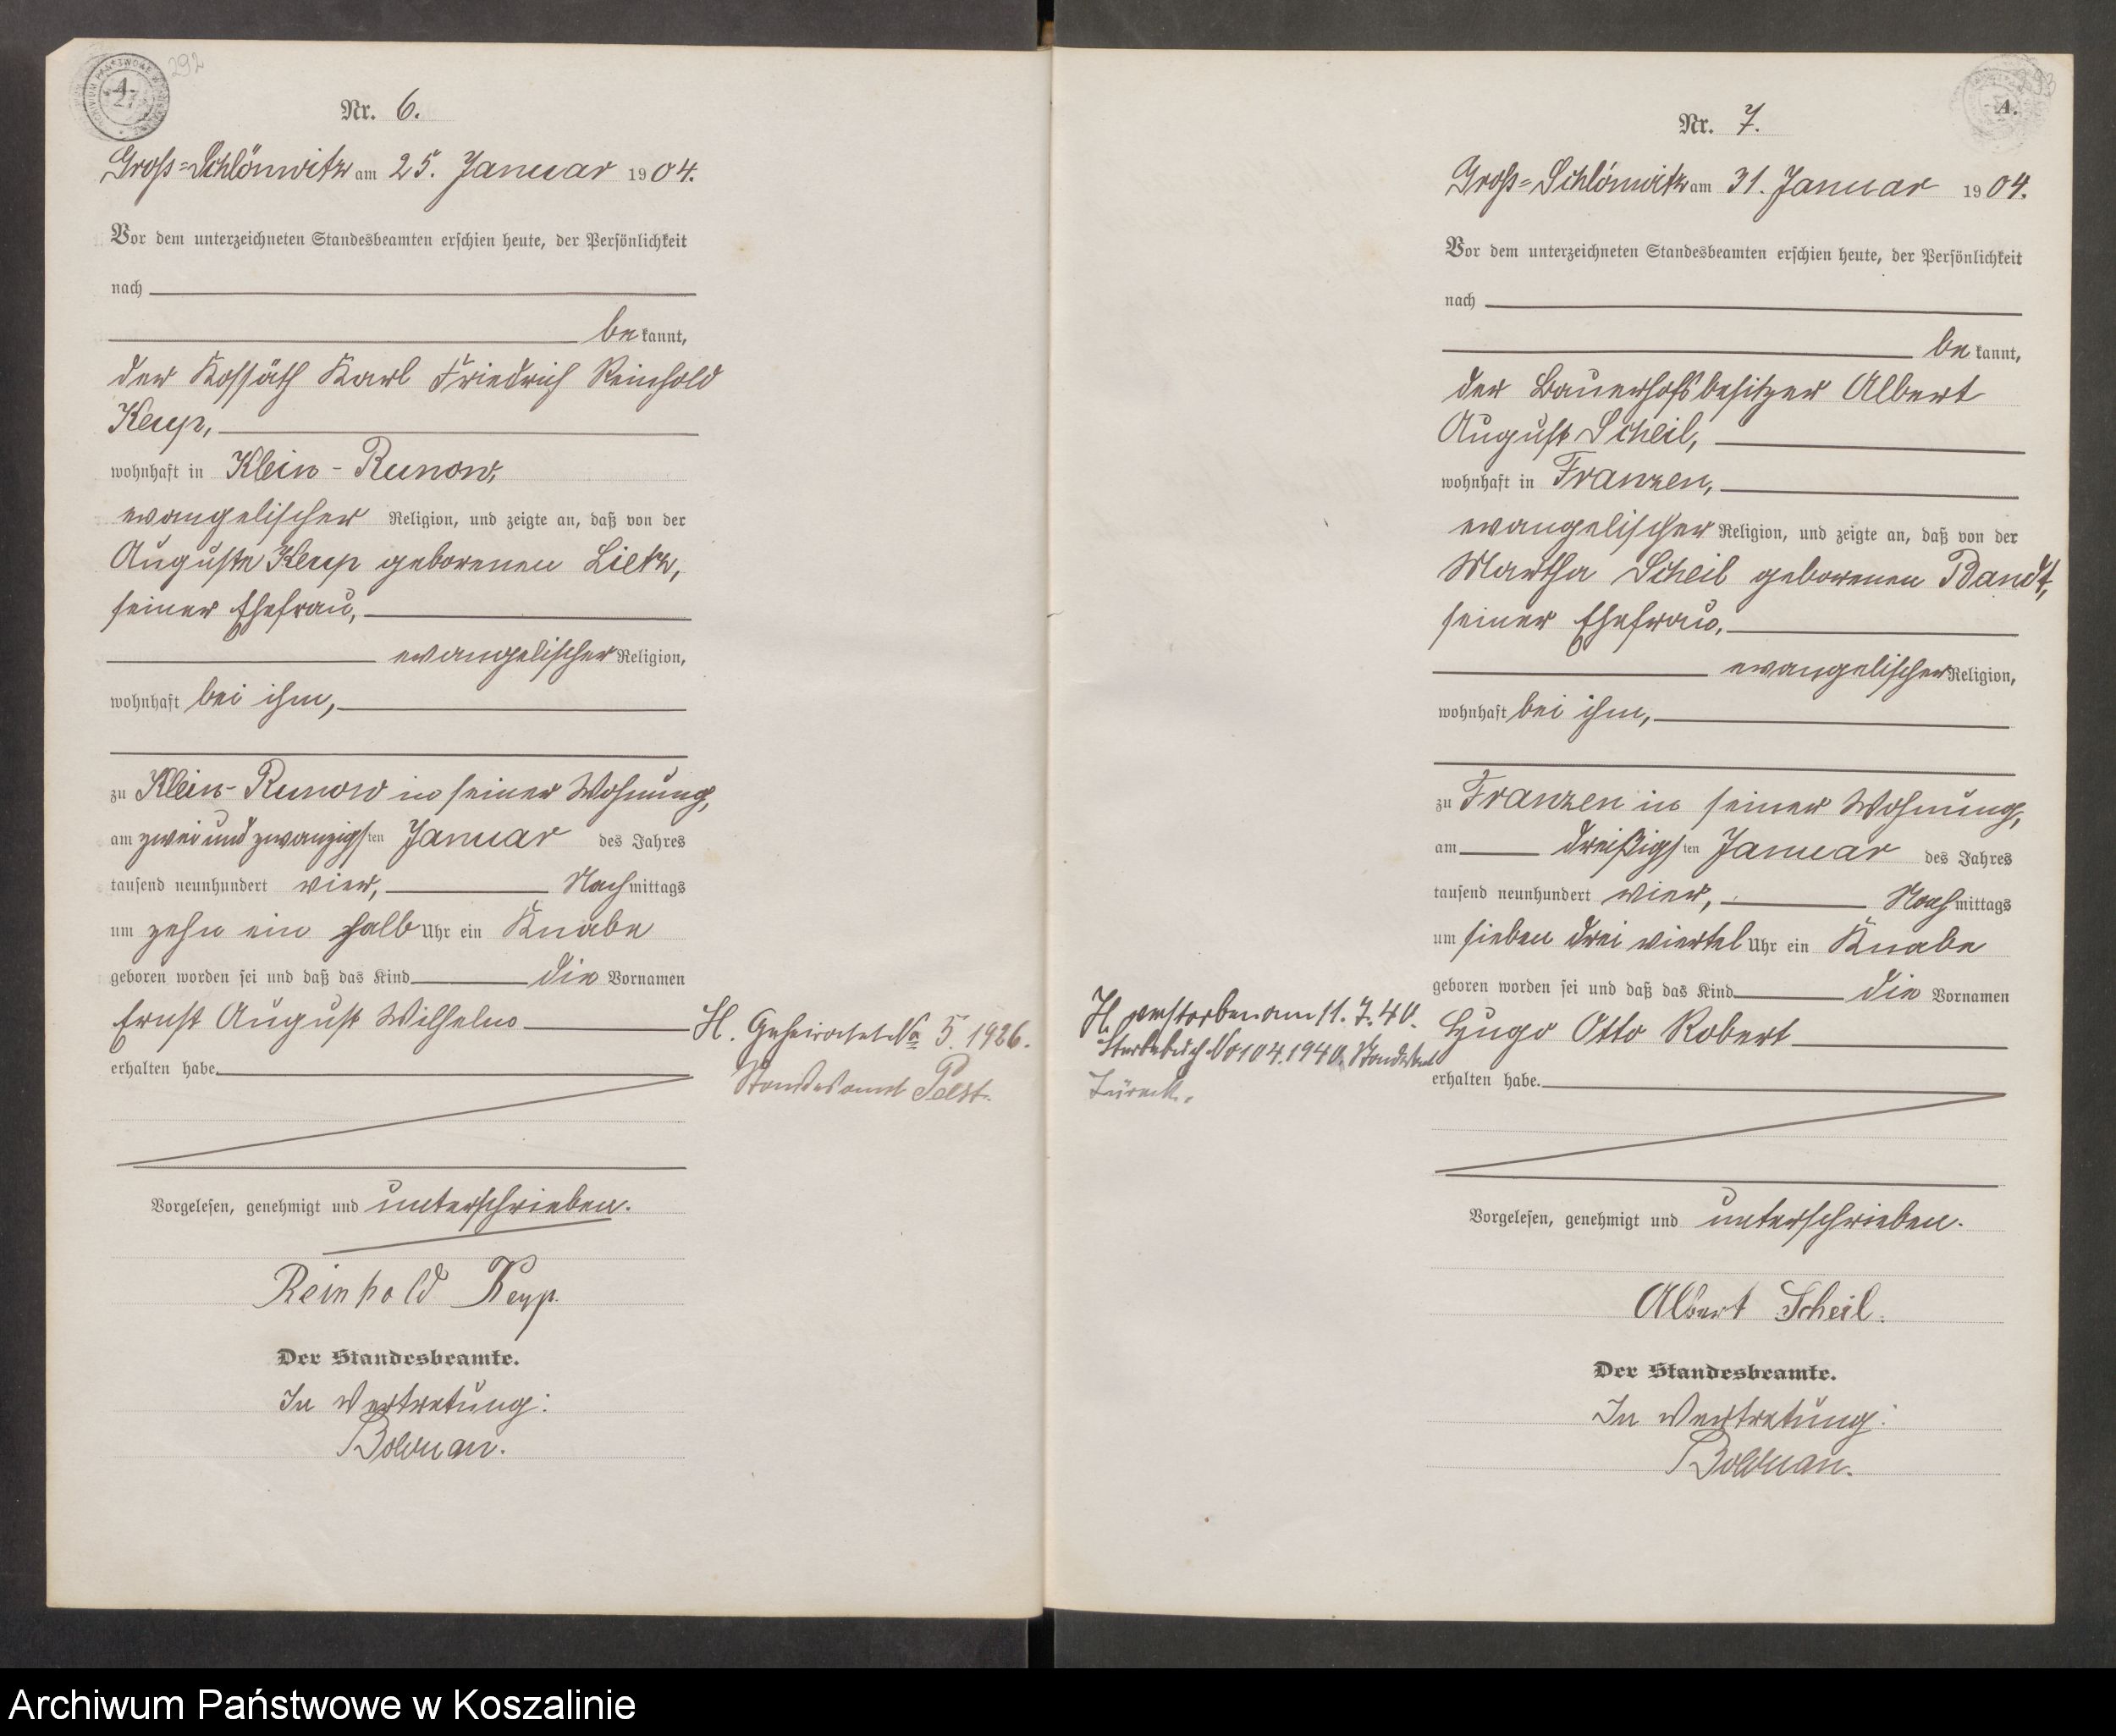 292
A.
Nr. 6.
Groß-Schlönwitz am 25. Januar 1904.
Vor dem unterzeichneten Standesbeamten erschien heute, der Persönlichkeit
nach
bekannt,
der Kossäth Karl Friedrich Reinhold
Keup,
wohnhaft in Klein-Runow,
evangelischer Religion, und zeigte an, daß von der
Auguste Keup geborenen Lietz,
seiner Ehefrau,
evangelischer Religion,
wohnhaft bei ihm,
zu Klein-Runow in seiner Wohnung,
am zwei und zwanzigsten Januar des Jahres
tausend neunhundert vier, Nachmittags
um zehn ein halb Uhr ein Knabe
geboren worden sei und daß das Kind die Vornamen
Ernst August Wilhelm
erhalten habe.
H. Geheiratet No 5. 1926.
Standesamt Peest.
Vorgelesen, genehmigt und unterschrieben.
Reinhold Keup.
Der Standesbeamte.
In Vertretung:
Bolduan.
A.
Nr. 7.
Groß-Schlönwitz am 31. Januar 1904.
Vor dem unterzeichneten Standesbeamten erschien heute, der Persönlichkeit
nach
bekannt,
der Bauerhofsbesitzer Albert
August Scheil,
wohnhaft in Franzen,
evangelischer Religion, und zeigte an, daß von der
Martha Scheil geborenen Bandt,
seiner Ehefrau,
evangelischer Religion,
wohnhaft bei ihm,
zu Franzen in seiner Wohnung,
am dreißigsten Januar des Jahres
tausend neunhundert vier, Nachmittags
um sieben drei viertel Uhr ein Knabe
geboren worden sei und daß das Kind die Vornamen
Hugo Otto Robert
erhalten habe.
H. verstorben am 11.7.40.
Sterbebuch No 104.1940. Standesamt
Vorgelesen, genehmigt und unterschrieben.
Albert Scheil.
Der Standesbeamte.
In Vertretung:
Bolduan.
Archiwum Państwowe w Koszalinie